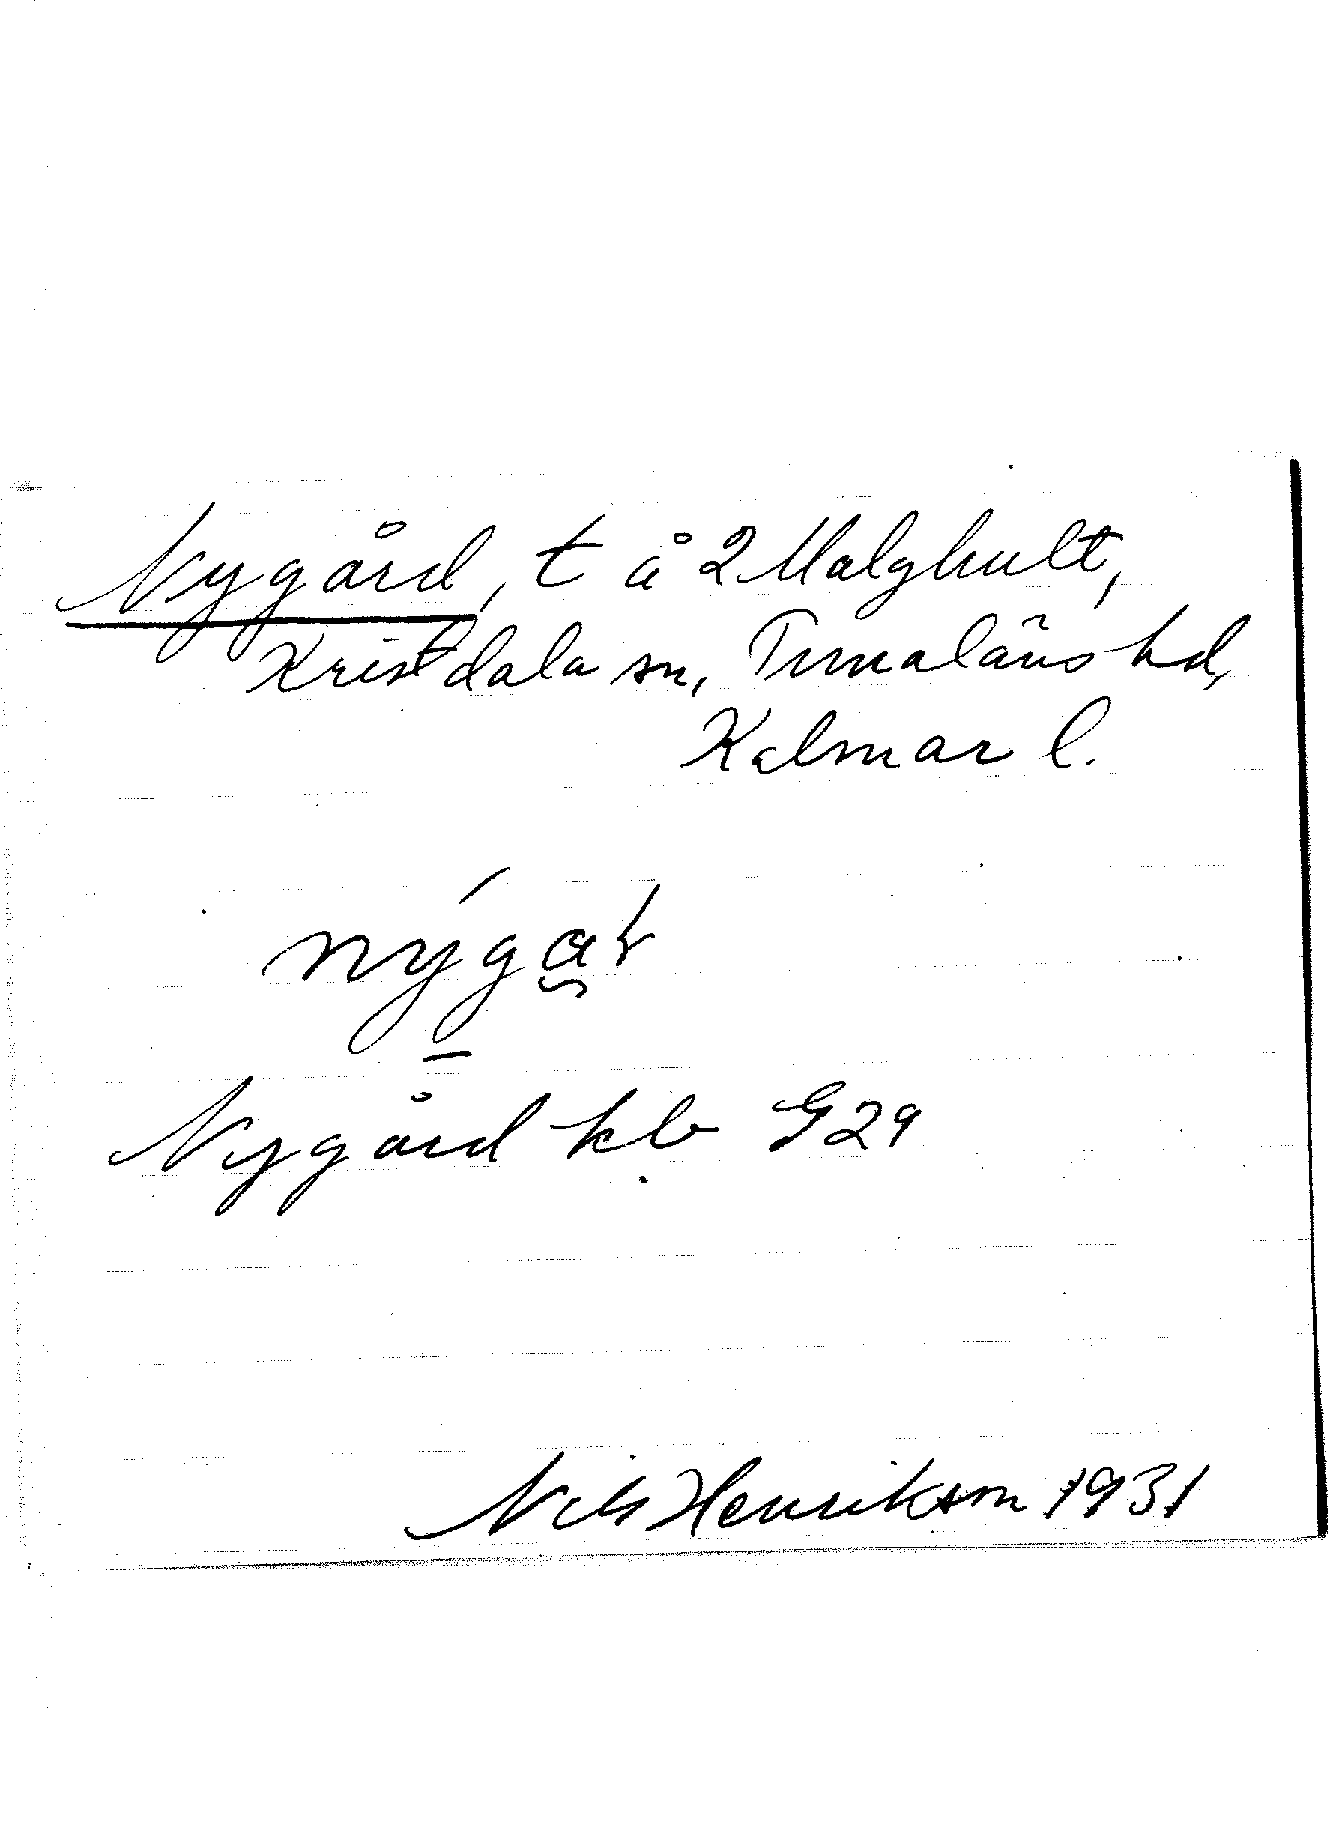 Nygård, t å 2 Malghult,
Kristdala sn, Tunaläns hd,
Kalmar l.
nýgar
Nygård kb G29
Nils Henrikson 1931